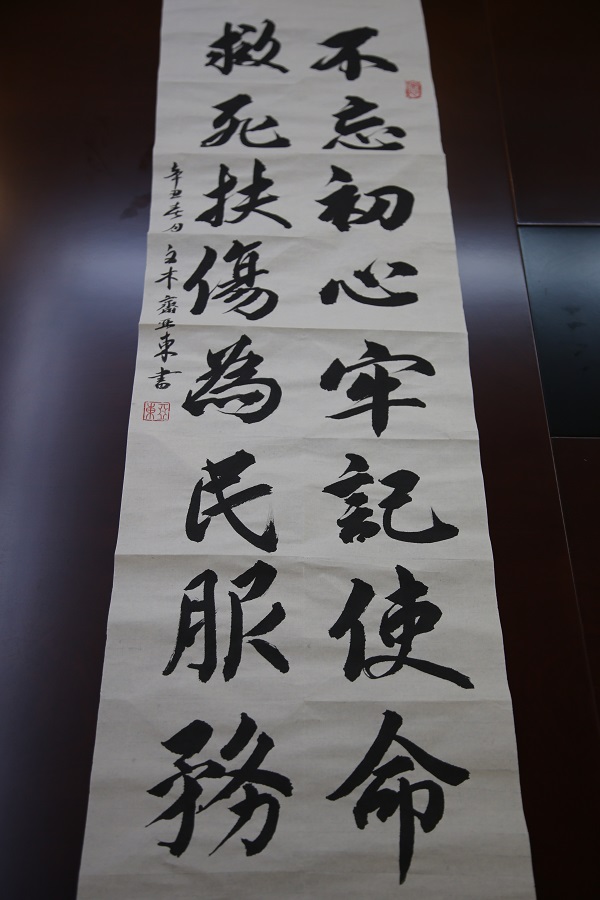 不忘初心牢記使命
救死扶傷為民服務
辛丑春月立木齋亚東書